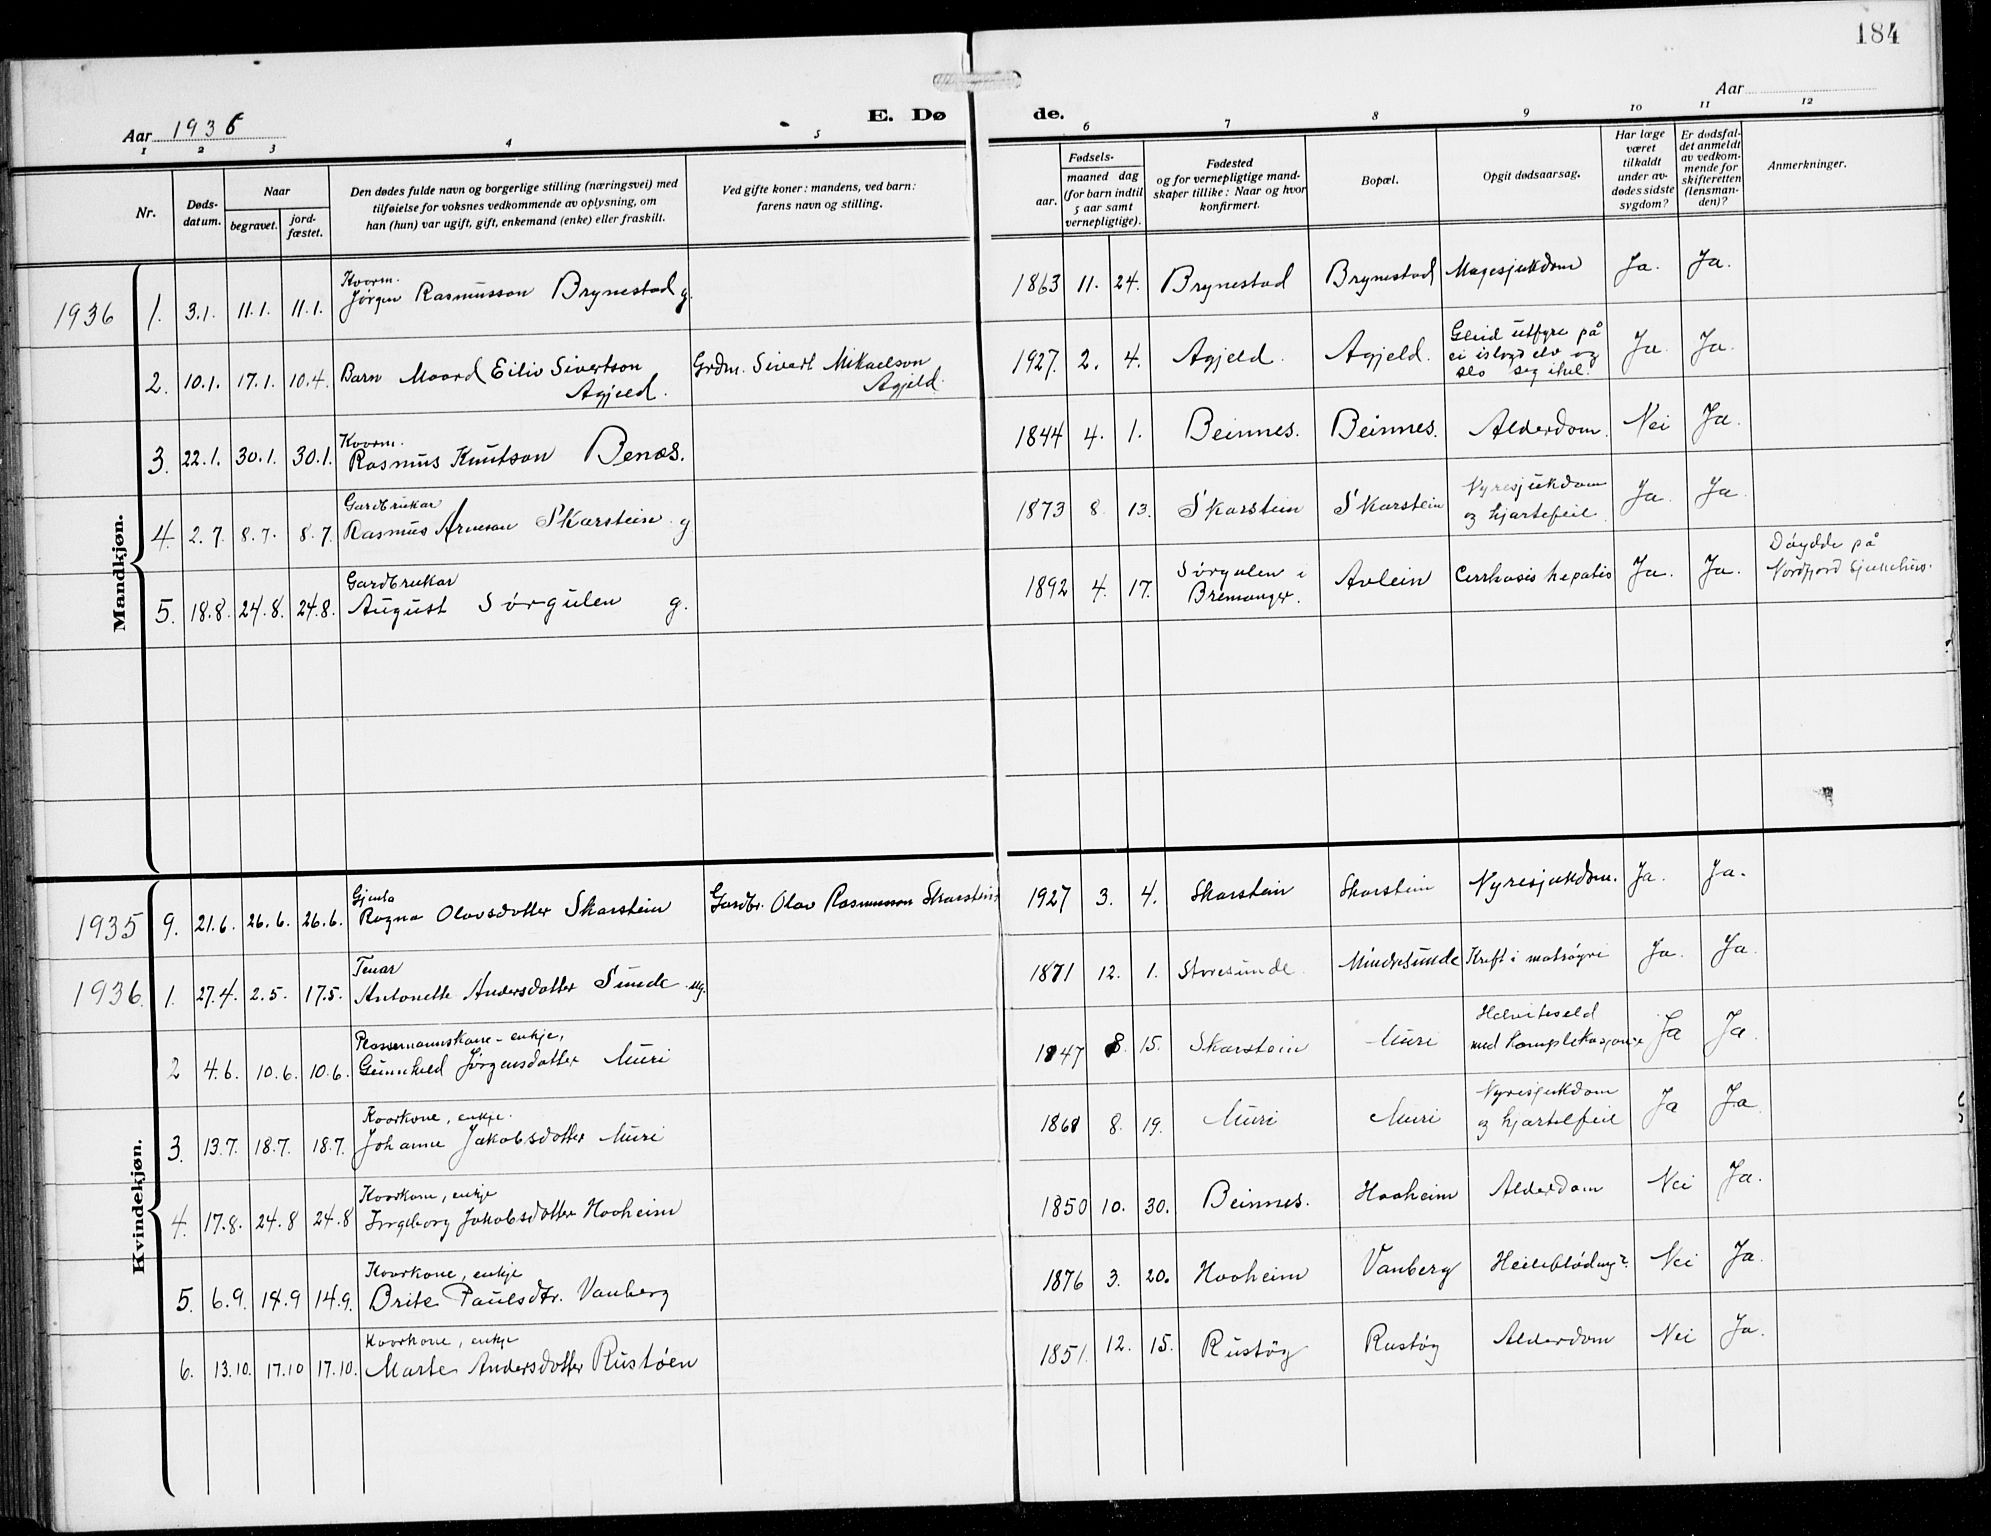 184
Aar 1936
E. Døde.
Aar
1 2 3 4 5 6 7 8 9 10 11 12
Nr.
Døds-
datum.
Naar
begravet.
jord-
fæstet.
Den dødes fulde navn og borgerlige stilling (næringsvei) med
tilføielse for voksnes vedkommende av oplysning, om
han (hun) var ugift, gift, enkemand (enke) eller fraskilt.
Ved gifte koner: mandens, ved barn:
farens navn og stilling.
Fødsels-
aar.
maaned dag
(for barn indtil
5 aar samt
vernepligtige).
Fødested
og for vernepligtige mand-
skaper tillike: Naar og hvor
konfirmert.
Bopæl.
Opgit dødsaarsag.
Har læge
været
tilkaldt
under av-
dødes sidste
sygdom?
Er dødsfal-
det anmeldt
av vedkom-
mende for
skifteretten
(lensman-
den)?
Anmerkninger.
Mandkjøn.
Kvorm.
1936 1. 3.1. 11.1. 11.1. Jørgen Rasmusson Brynestad g. 1863 11. 24. Brynestad Brynestad Magesjukdom Ja. Ja.
2. 10.1. 17.1. 10.4. Barn Moard Eiliv Sivertson Grdm. Sivert Mikaelson 1927. 2. 4. Agjeld. Agjeld. Ja. Ja.
Agjeld. Agjeld.
Gleid utfyre på
ei islagd elv og
slo seg ihel.
Kvorm.
3. 22.1. 30.1. 30.1. Rasmus Knutson Benæs. 1844 4. 1. Beinnes. Beinnes. Alderdom. Nei Ja.
Gardbrukar
4. 2.7. 8.7. 8.7. Rasmus Arneson Skarstein g 1873 8 13. Skarstein Skarstein Nyresjukdom Ja. Ja.
og hjartefeil
Gardbrukar
5. 18.8. 24.8. 24.8. August Sørgulen g. 1892 4. 17. Sørgulen i Avlein Cirrhosis hepatis Ja. Ja. Døydde på
Bremanger. Nordfjord Sjukehus.
Kvindekjøn.
Gjenta
1935 9. 21.6. 26.6. 26.6. Ragna Olavsdotter Skarstein Gardbr. Olav Rasmusson Skarstein 1927 3. 4. Skarstein Skarstein Nyresjukdom. Ja. Ja.
Tenar
1936. 1. 27.4. 2.5. 17.5. Antonette Andersdotter Sunde ug. 1871 12. 1. Storesunde Mindresunde Kreft i matrøyri Ja. Ja.
Plassemannskone - enkje,
2 4.6. 10.6. 10.6. Gunnhild Jørgensdotter Muri 1847 8. 15. Skarstein Muri Helviteseld Ja Ja.
med komplikasjonar
Kvorkone, enkje.
3. 13.7. 18.7. 18.7. Johanne Jakobsdotter Muri 1868 8. 19. Muri Muri Nyresjukdom Ja Ja.
og hjartefeil
Kvorkone, enkje
4. 17.8. 24.8 24.8 Ingeborg Jakobsdotter Hooheim 1850 10. 30. Beinnes. Hooheim Alderdom Nei Ja.
Kvorkone, enkje
5. 6.9. 14.9 14.9. Brite Paulsdtr. Vanberg 1876 3. 20. Hooheim Vanberg Heilebløding? Nei Ja.
Kvorkone, enkje
6. 13.10. 17.10 17.10. Marte Andersdotter Rustøen 1851. 12. 15. Rustøy Rustøy Alderdom Nei Ja.